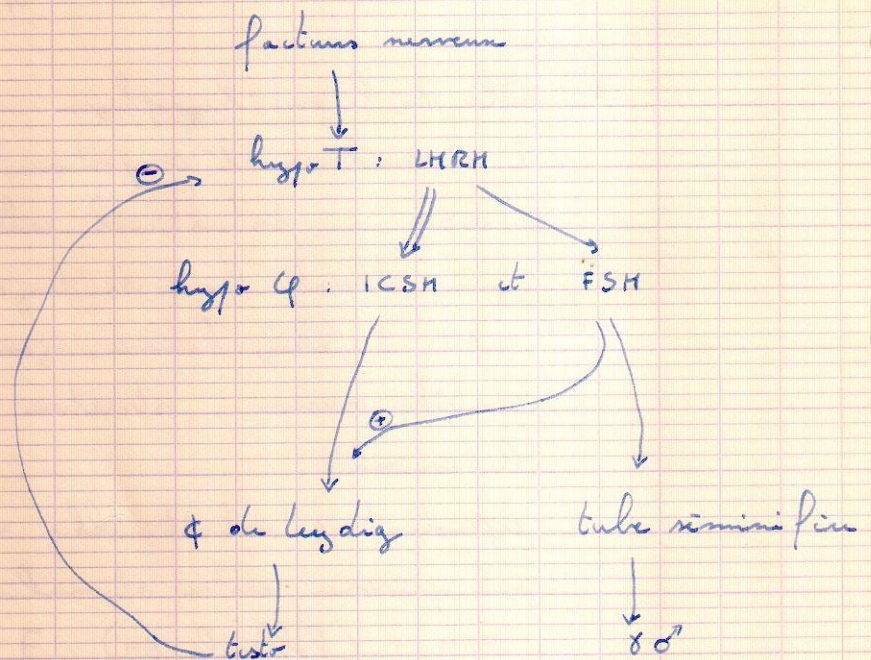 facteurs nerveux
⊖ hypo T : LHRH
hypo φ : ICSH et FSH
⊕
¢ de leydig tube séminifère
testo γ ♂